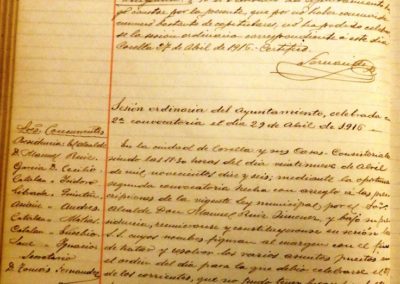 por la presente, que por no haber concurrido
numero bastante de capitulares, no ha podido celebrar
se la sesión ordinaria correspondiente á este dia
Corella 27 de Abril de 1916. Certifico.
Fernandez
Sesión ordinaria del Ayuntamiento, celebrada en
2ª convocatoria el dia 29 de Abril de 1916-
Sres. Concurrentes
Presidencia: El Alcalde
D. Manuel Ruiz
D. Cecilio
Catalan - Isidoro
Andres
Catalan - Matias
Catalan - Eusebio
Sanz - Ignacio
Secretario
D. Tomás Fernandez
En la ciudad de Corella y sus Casas Consistoriales
siendo las horas del dia veintinueve de Abril
de mil novecientos diez y seis; mediante la oportuna
segunda convocatoria hecha con arreglo á las pres-
cripciones de la vigente ley municipal por el Señor
Alcalde Don Manuel Ruiz Jimenez, y bajo su pre
sidencia, reunieronse y constituyeronse en sesión los
S.S. cuyos nombres figuran al margen con el fin
de tratar y resolver los varios asuntos puestos en
el orden del dia para la que debió celebrarse el
de los corrientes, que no pudo tener lugar